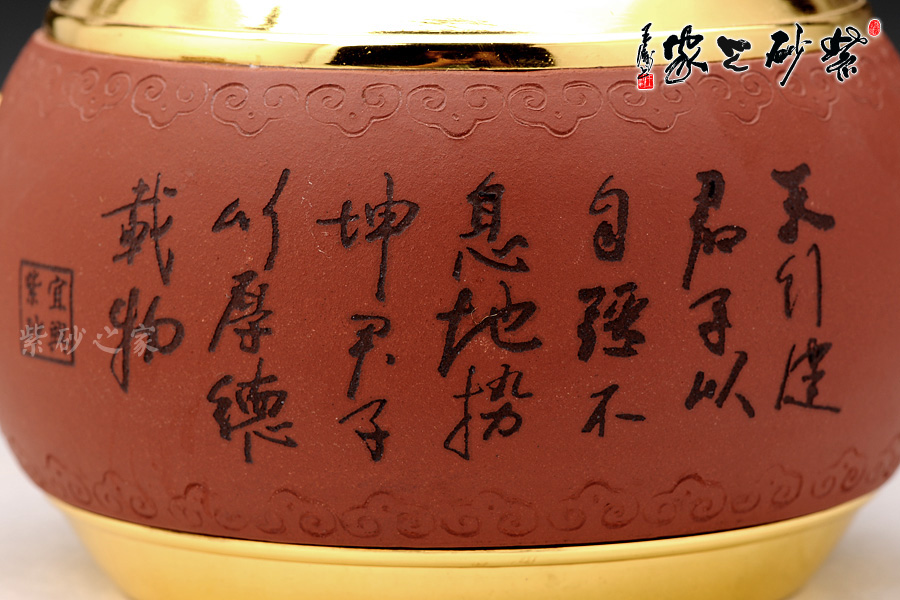 紫砂之家
天行健
君子以
自强不
息地势
坤君子
以厚德
載物
宜興
紫砂
紫砂之家